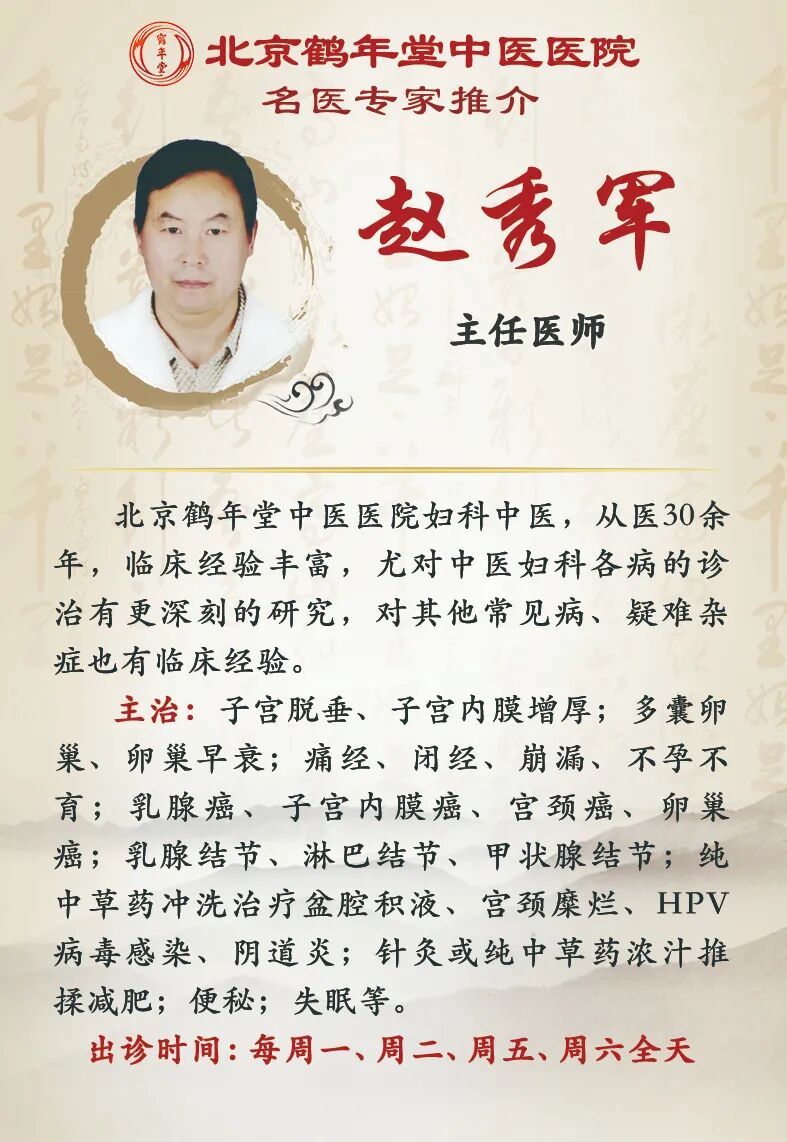 鹤年堂
北京鹤年堂中医医院
名医专家推介
赵秀军
主任医师
北京鹤年堂中医医院妇科中医，从医30余
年，临床经验丰富，尤对中医妇科各病的诊
治有更深刻的研究，对其他常见病、疑难杂
症也有临床经验。
主治：子宫脱垂、子宫内膜增厚；多囊卵
巢、卵巢早衰；痛经、闭经、崩漏、不孕不
育；乳腺癌、子宫内膜癌、宫颈癌、卵巢
癌；乳腺结节、淋巴结节、甲状腺结节；纯
中草药冲洗治疗盆腔积液、宫颈糜烂、HPV
病毒感染、阴道炎；针灸或纯中草药浓汁推
揉减肥；便秘；失眠等。
出诊时间：每周一、周二、周五、周六全天